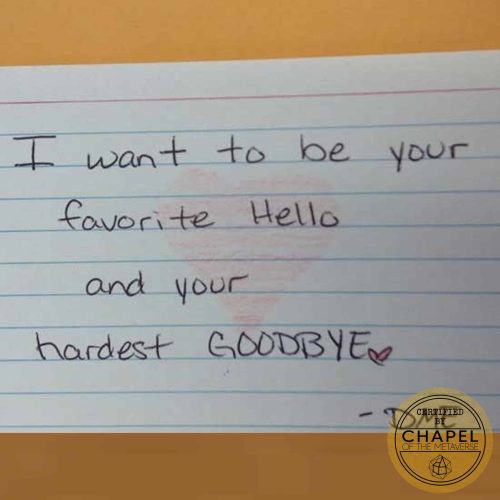 I want to be your
favorite Hello
and your
hardest GOODBYE
- DME
CERTIFIED
BY
CHAPEL
OF THE METAVERSE